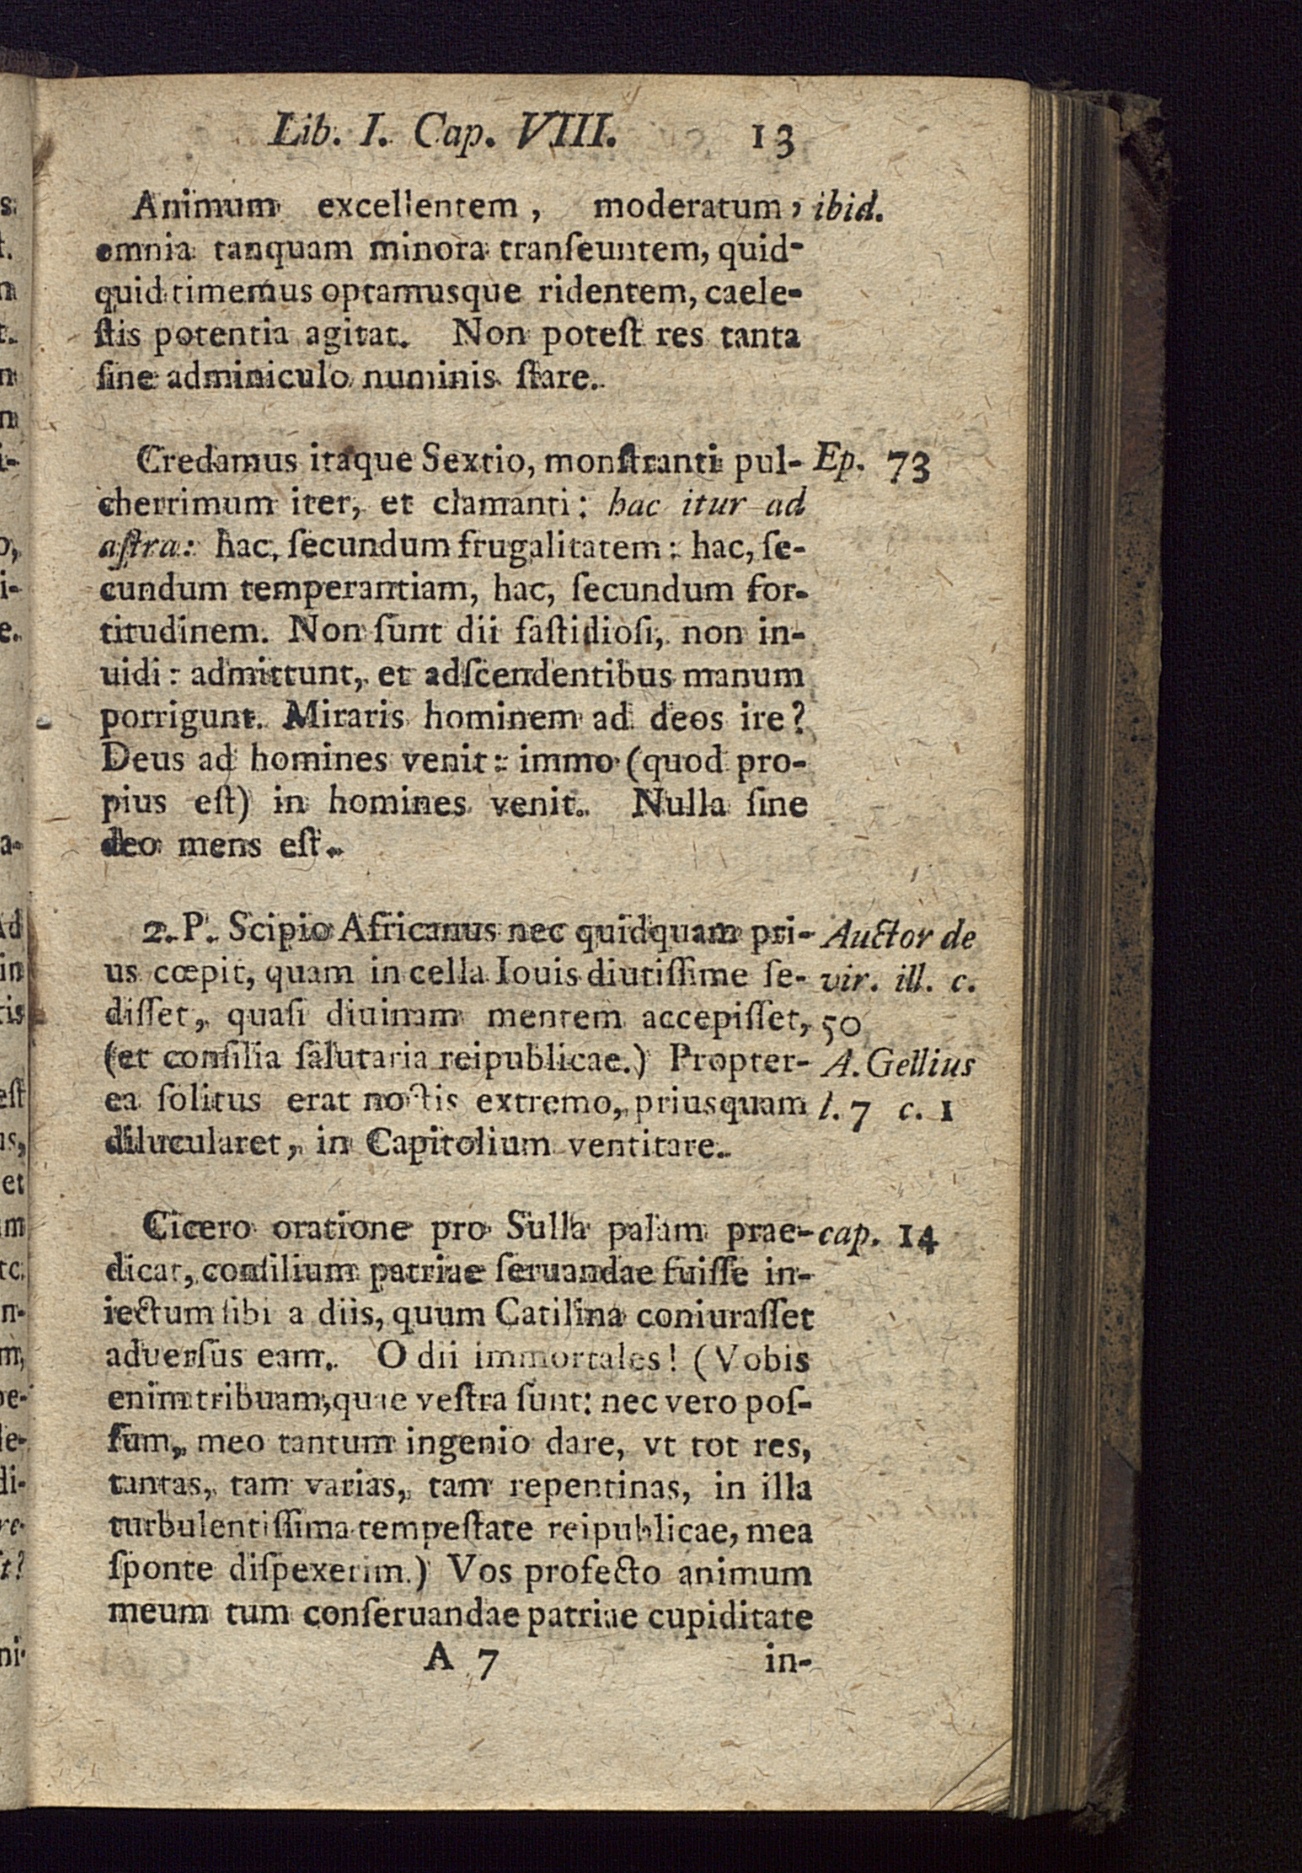 Lib. I. Cap. VIII. 13
Animum excellentem, moderatum, ibid.
omnia tanquam minora tranſeuntem, quid-
quid timemus optamusque ridentem, caele-
ſtis potentia agitat. Non poteſt res tanta
ſine adminiculo numinis ſtare.
Credamus itaque Sextio, monſtranti pul- Ep. 73
cherrimum iter, et clamanti: hac itur ad
aſtra: hac, ſecundum frugalitatem: hac, ſe-
cundum temperantiam, hac, ſecundum for-
titudinem. Non ſunt dii faſtidioſi, non in-
uidi: admittunt, et adſcendentibus manum
porrigunt. Miraris hominem ad deos ire?
Deus ad homines venit: immo (quod pro-
pius eſt) in homines venit. Nulla ſine
deo mens eſt.
2. P. Scipio Africanus nec quidquam pri- Auctor de
us cœpit, quam in cella Iouis diutiſſime ſe- vir. ill. c.
diſſet, quaſi diuinam mentem accepiſſet, 50
(et conſilia ſalutaria reipublicae.) Propter- A. Gellius
ea ſolitus erat noctis extremo, priusquam l. 7 c. 1
dilucularet, in Capitolium ventitare.
Cicero oratione pro Sulla palam prae- cap. 14
dicat, conſilium patriae ſeruandae fuiſſe in-
iectum ſibi a diis, quum Catilina coniuraſſet
adverſus eam. O dii immortales! (Vobis
enim tribuam, quae veſtra ſunt: nec vero poſ-
ſum, meo tantum ingenio dare, vt tot res,
tantas, tam varias, tam repentinas, in illa
turbulentiſſima tempeſtate reipublicae, mea
ſponte diſpexerim.) Vos profecto animum
meum tum conſeruandae patriae cupiditate
A 7 in-